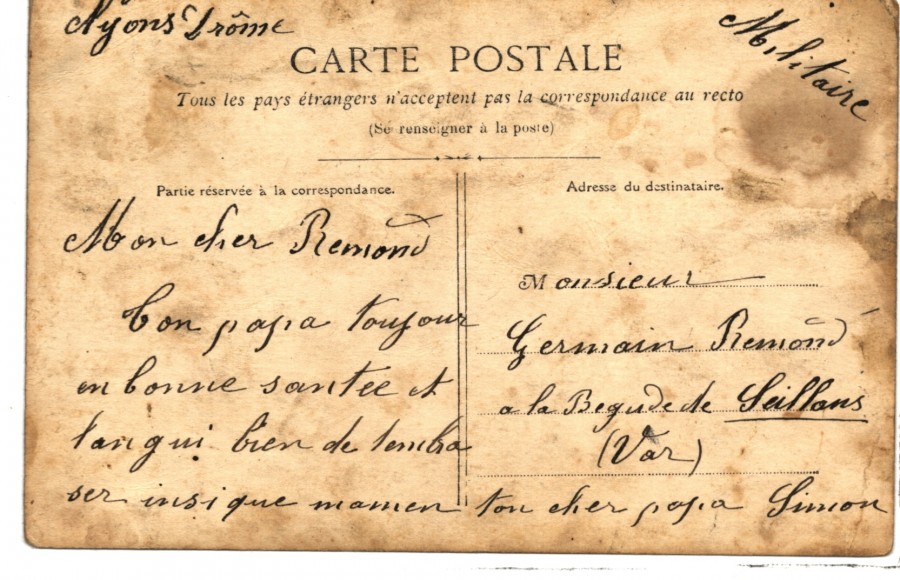 Nyons Drôme
Militaire
CARTE POSTALE
Tous les pays étrangers n'acceptent pas la correspondance au recto
(Se renseigner à la poste)
Partie réservée à la correspondance.
Mon cher Remond
Ton papa toujour
en bonne santee et
langui bien de lembra
ser insi que mamen ton cher papa Simon
Adresse du destinataire.
Monsieur
Germain Remond
a la Begude de Seillans
(Var)